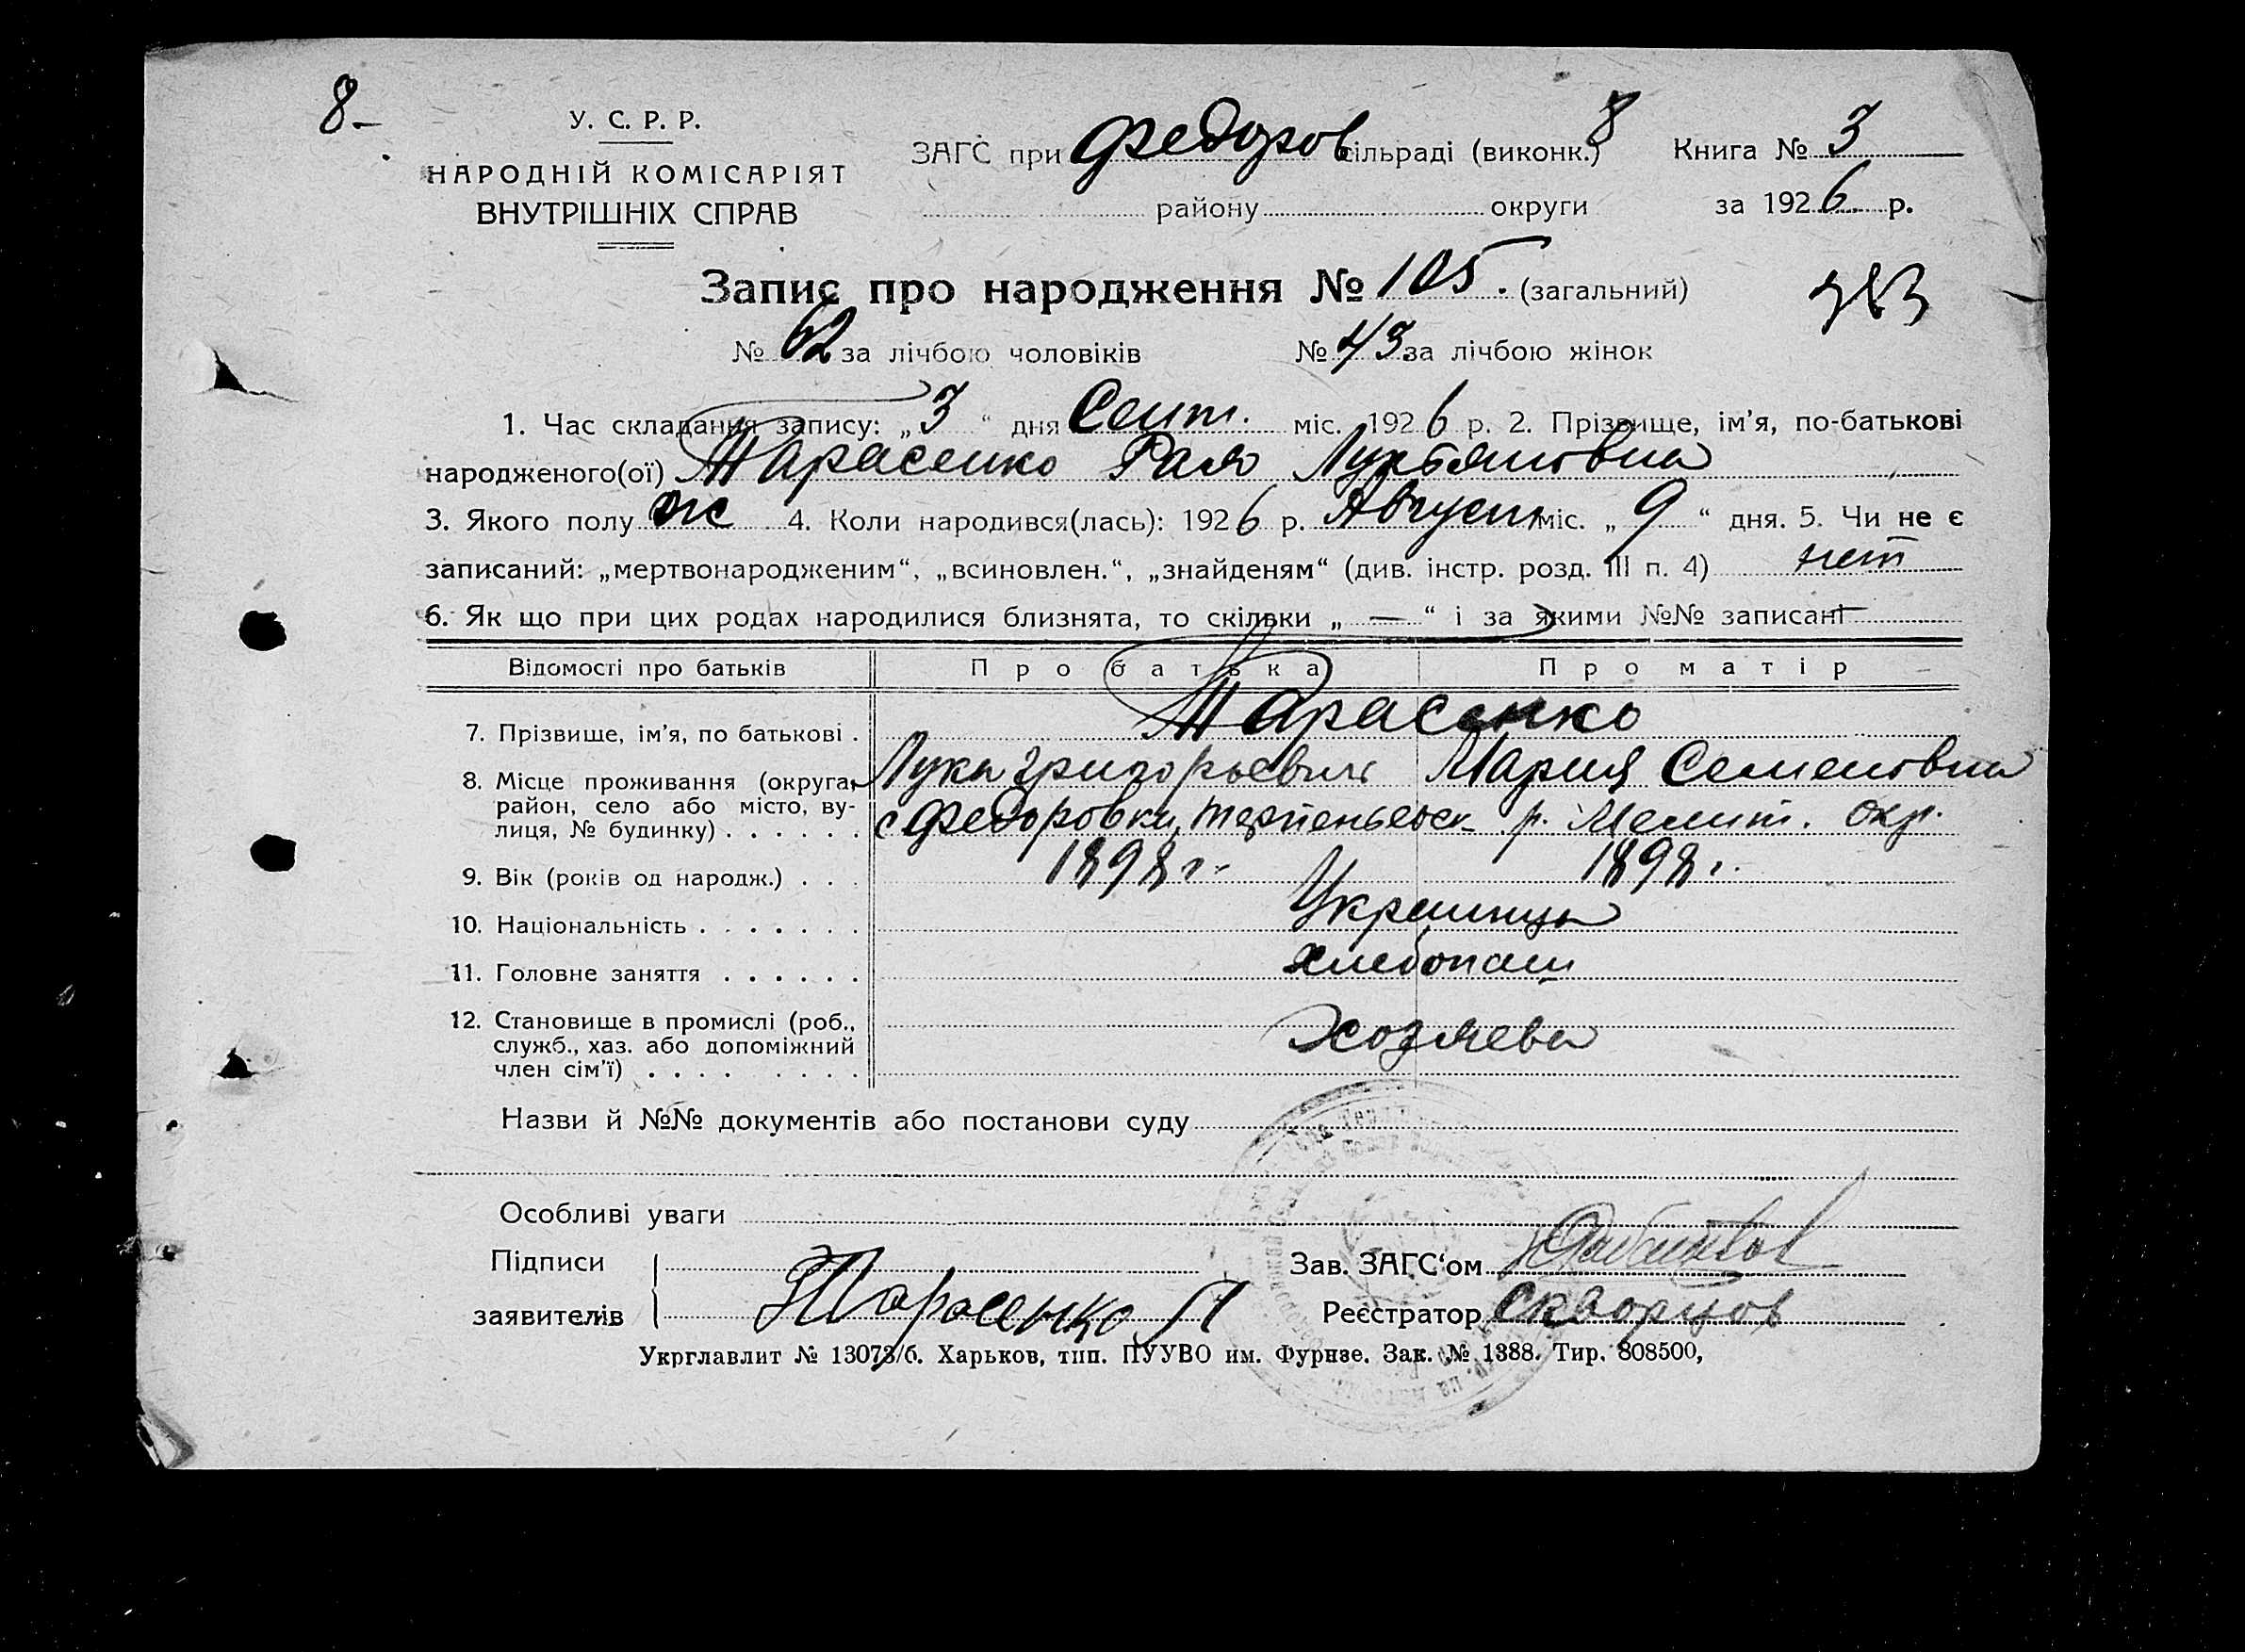 8-
У. С. Р. Р.
НАРОДНІЙ КОМІСАРІЯТ
ВНУТРІШНІХ СПРАВ
ЗАГС при Федоров сільраді (виконк.) 8 Книга № 3
району округи за 1926 р.
Запис про народження № 105. (загальний)
№ 62 за лічбою чоловіків № 43 за лічбою жінок
1. Час складання запису: „3“ дня Сент. міс. 1926 р. 2. Прізвище, ім'я, по-батькові
народженого(ої) Тарасенко Рая
3. Якого полу ж 4. Коли народився(лась): 1926 р. Август міс. „9“ дня. 5. Чи не є
записаний: „мертвонародженим“, „всиновлен.“, „знайденям“ (див. інстр. розд. III п. 4) нет
6. Як що при цих родах народилися близнята, то скільки „—“ і за якими №№ записані —
Відомості про батьків Про батька Про матір
7. Прізвище, ім'я, по батькові . Тарасенко
Лука Григорьевич Мария Семеновна
8. Місце проживання (округа, район, село або місто, вулиця, № будинку) . . . . . . с Федоровки, Терпеньевск р. Мелит. окр.
9. Вік (років од народж.) . . . 1898 г. 1898 г.
10. Національність . . . . . . . Украинцы
11. Головне заняття . . . . . . хлебопаш
12. Становище в промислі (роб., служб., хаз. або допоміжний член сім'ї) . . . . . . . . Хозяева
Назви й №№ документів або постанови суду
Особливі уваги
Підписи
заявителів Тарасенко Л
Зав. ЗАГС‘ом
Реєстратор Скворцов
Укрглавлит № 13073/б. Харьков, тип. ПУУВО им. Фрунзе. Зак. № 1388. Тир. 808500,